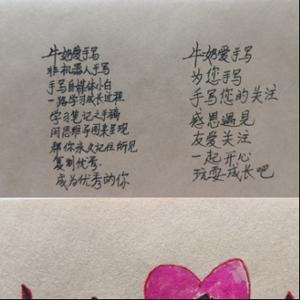 牛奶爱手写
非机器人手写
手写自媒体小白
一路学习成长过程
学习笔记之手稿
用思维导图来呈现
帮你永久记住所见
复制优秀.
成为优秀的你
牛奶爱手写
为您手写
手写您的关注
感恩遇见
友爱关注
一起开心
玩耍成长吧